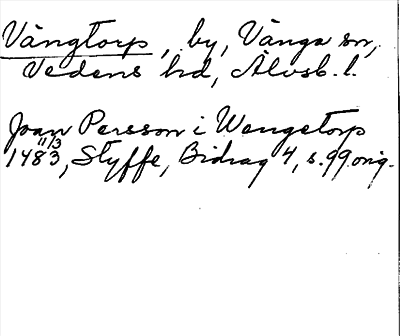 Vångtorp, by, Vånga sn,
Vedens hd, Älvsb. l.
Joan Persson i Wengetorp
11/3
1483, Styffe, Bidrag 4, s. 99 orig.